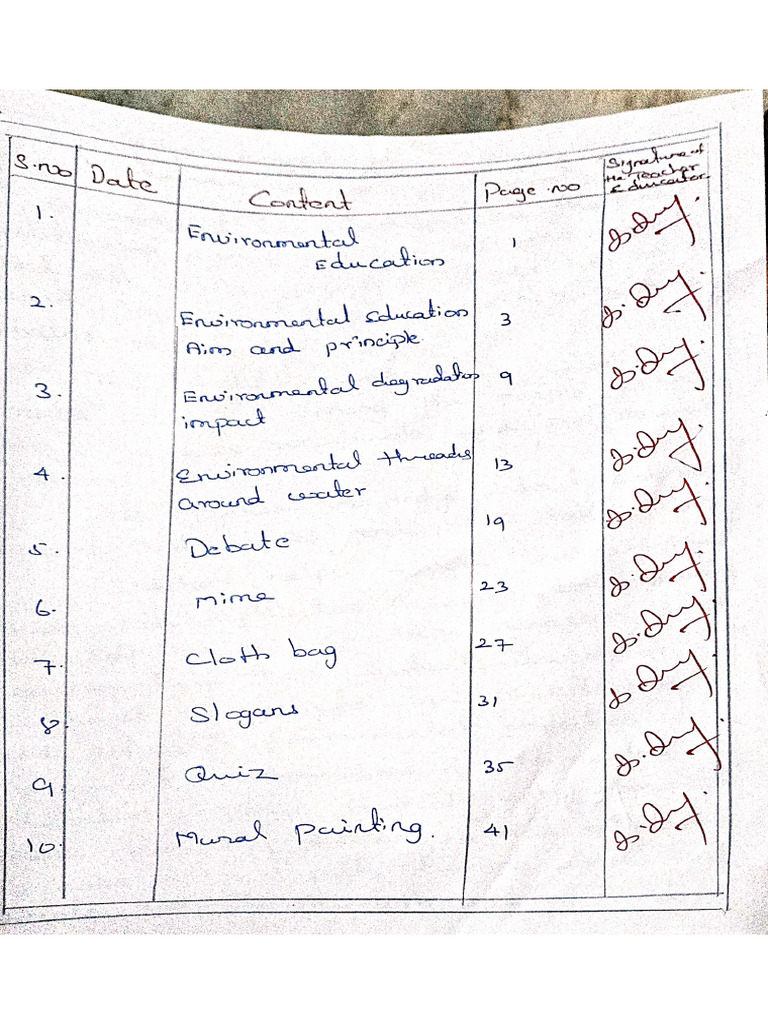 S.no Date Content Page.no Signature of
the Teacher
Educator
1. Environmental
Education 1
2. Environmental Education
Aim and principle 3
3. Environmental degradation 9
impact
4. Environmental threads 13
around water
5. Debate 19
6. Mime 23
7. Cloth bag 27
8. Slogans 31
9. Quiz 35
10. Mural Painting. 41